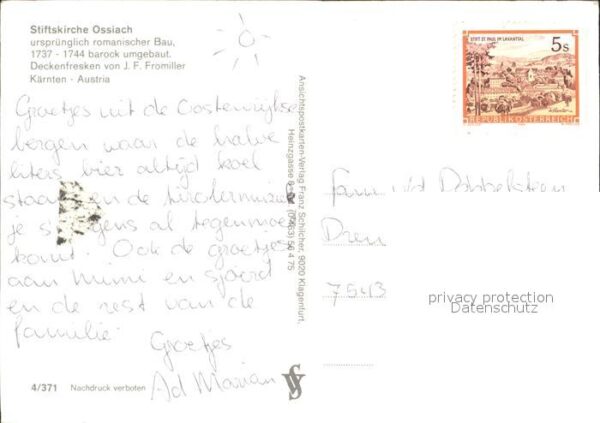 Stiftskirche Ossiach
ursprünglich romanischer Bau,
1737 - 1744 barock umgebaut.
Deckenfresken von J. F. Fromiller
Kärnten - Austria
Groetjes uit de Oostenrijkse
bergen waar de halve
liters bier altijd koel
staan en de tirolermuziek
je s gens al tegemoet
komt. Ook de groetjes
aan Mimi en Sjoerd
en de rest van de
familie.
Groetjes
Ad Marian
4/371 Nachdruck verboten
Ansichtspostkarten-Verlag Franz Schilcher, 9020 Klagenfurt,
Heinzgasse 8 56 4 75
STIFT ST. PAUL IM LAVANTTAL
5s
REPUBLIK ÖSTERREICH
Fam v/d Dobbelsteen
7543
privacy protection
Datenschutz